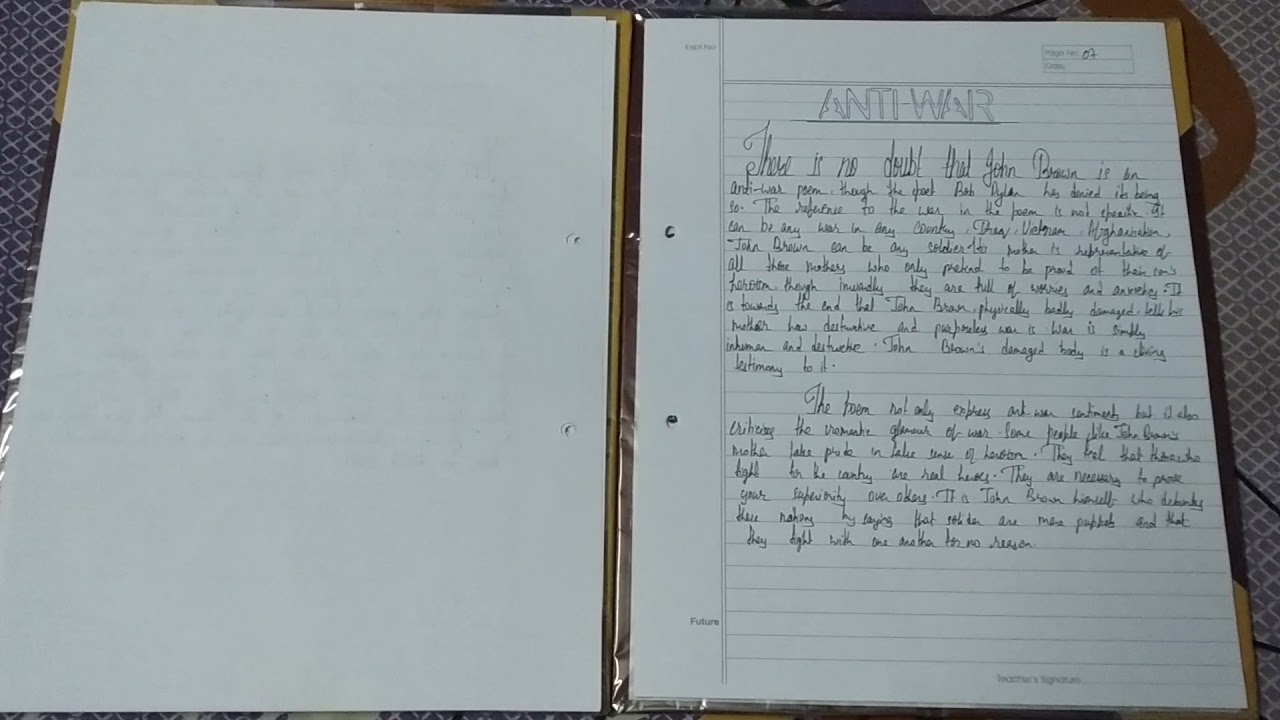 Expt.No
Page No. 07
Date
ANTI-WAR
There is no doubt that John Brown is an
anti-war poem, though the poet Bob Dylan has denied its being
so. The reference to the war in the poem is not specific. It
can be any war in any country, Iraq, Vietnam, Afghanisation,
John Brown can be any soldier. His mother is representative of
all those mothers who only pretend to be proud of their son's
heroism, though inwardly they are full of worries and anxieties. It
is towards the end that John Brown, physically badly damaged, tells his
mother how destructive and purposeless war is. War is simply
inhuman and destructive. John Brown's damaged body is a living
testimony to it.
The Poem not only express anti-war sentiments but it also
criticises the romantic glamour of war. Some people, like John Brown's
mother take pride in false sense of heroism. They feel that those who
fight for the country are real heroes. They are necessary to prove
your superiority over others. It is John Brown himself who debunks
these notions by saying that soldier are mere puppets and that
they fight with one another for no reason.
Future
Teacher's Signature